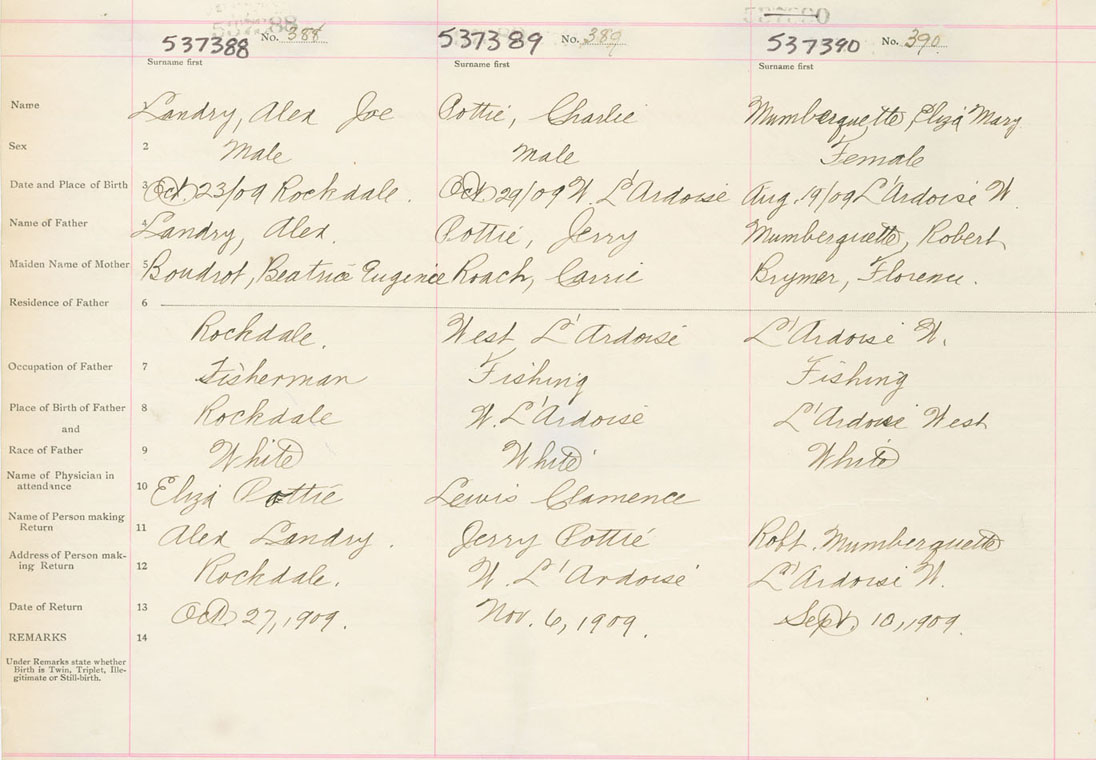 537388 No. 388 537389 No. 389 537390 No. 390
Surname first Surname first Surname first
Name 1 Landry, Alex Joe Pottie, Charlie Mumberquette, Eliza Mary
Sex 2 Male Male Female
Date and Place of Birth 3 Oct. 23/09 Rockdale. Oct. 29/09 W. L'Ardoise Aug. 19/09 L'Ardoise W.
Name of Father 4 Landry, Alex. Pottie, Jerry Mumberquette, Robert
Maiden Name of Mother 5 Boudrot, Beatrice Eugenie Roach, Carrie Brymer, Florence.
Residence of Father 6
Rockdale. West L'Ardoise L'Ardoise W.
Occupation of Father 7 Fisherman Fishing Fishing
Place of Birth of Father 8 Rockdale W. L'Ardoise L'Ardoise West
and
Race of Father 9 White White White
Name of Physician in
attendance 10 Eliza Pottie Lewis Clamence
Name of Person making
Return 11 Alex Landry. Jerry Pottie Robt. Mumberquette
Address of Person mak-
ing Return 12 Rockdale. W. L'Ardoise L'Ardoise W.
Date of Return 13 Oct. 27, 1909. Nov. 6, 1909. Sept. 10, 1909.
REMARKS 14
Under Remarks state whether
Birth is Twin, Triplet, Ille-
gitimate or Still-birth.